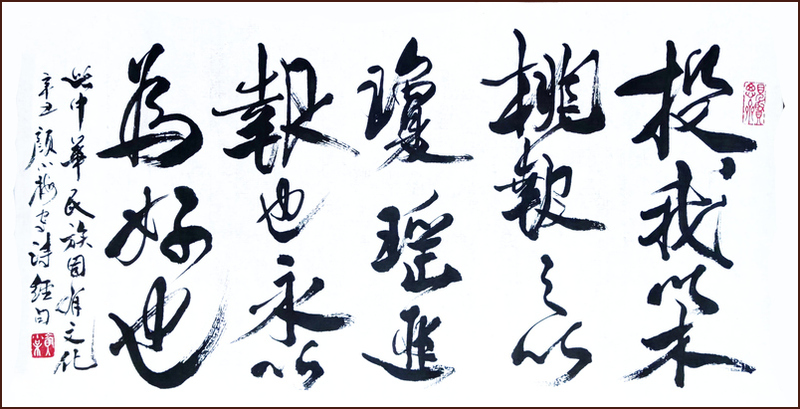 投我以木
桃報之以
瓊瑤匪
報也永以
為好也
此中華民族固有文化
辛丑顏小梅书詩經句